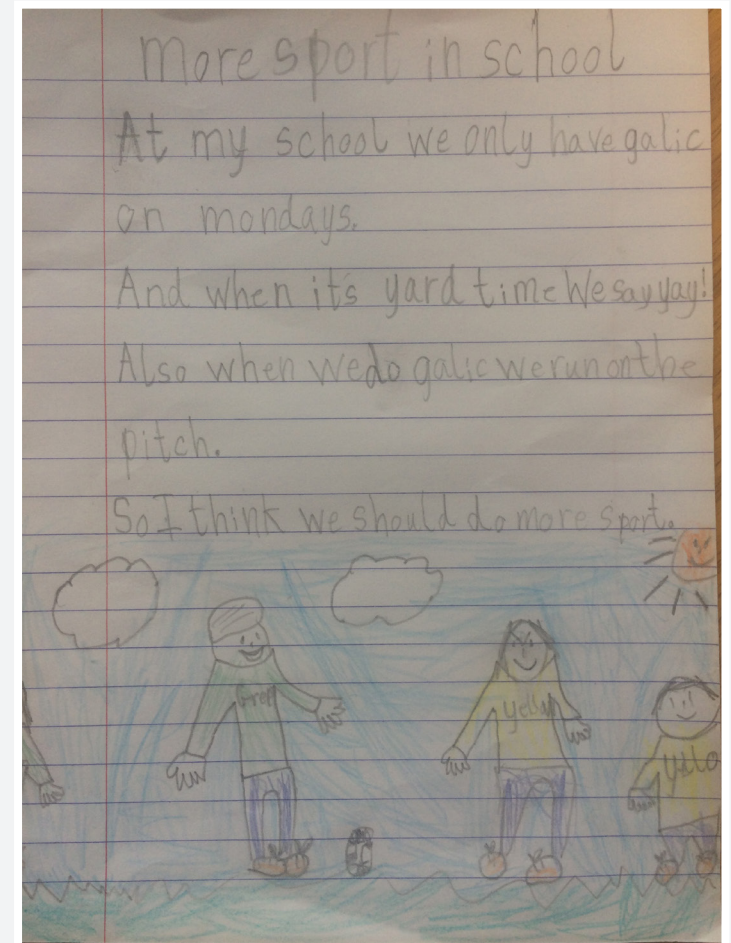 more sport in school
At my school we only have galic
on mondays.
And when it's yard time We say yay!
Also when we do galic we run on the
pitch.
So I think we should do more sport.
yello